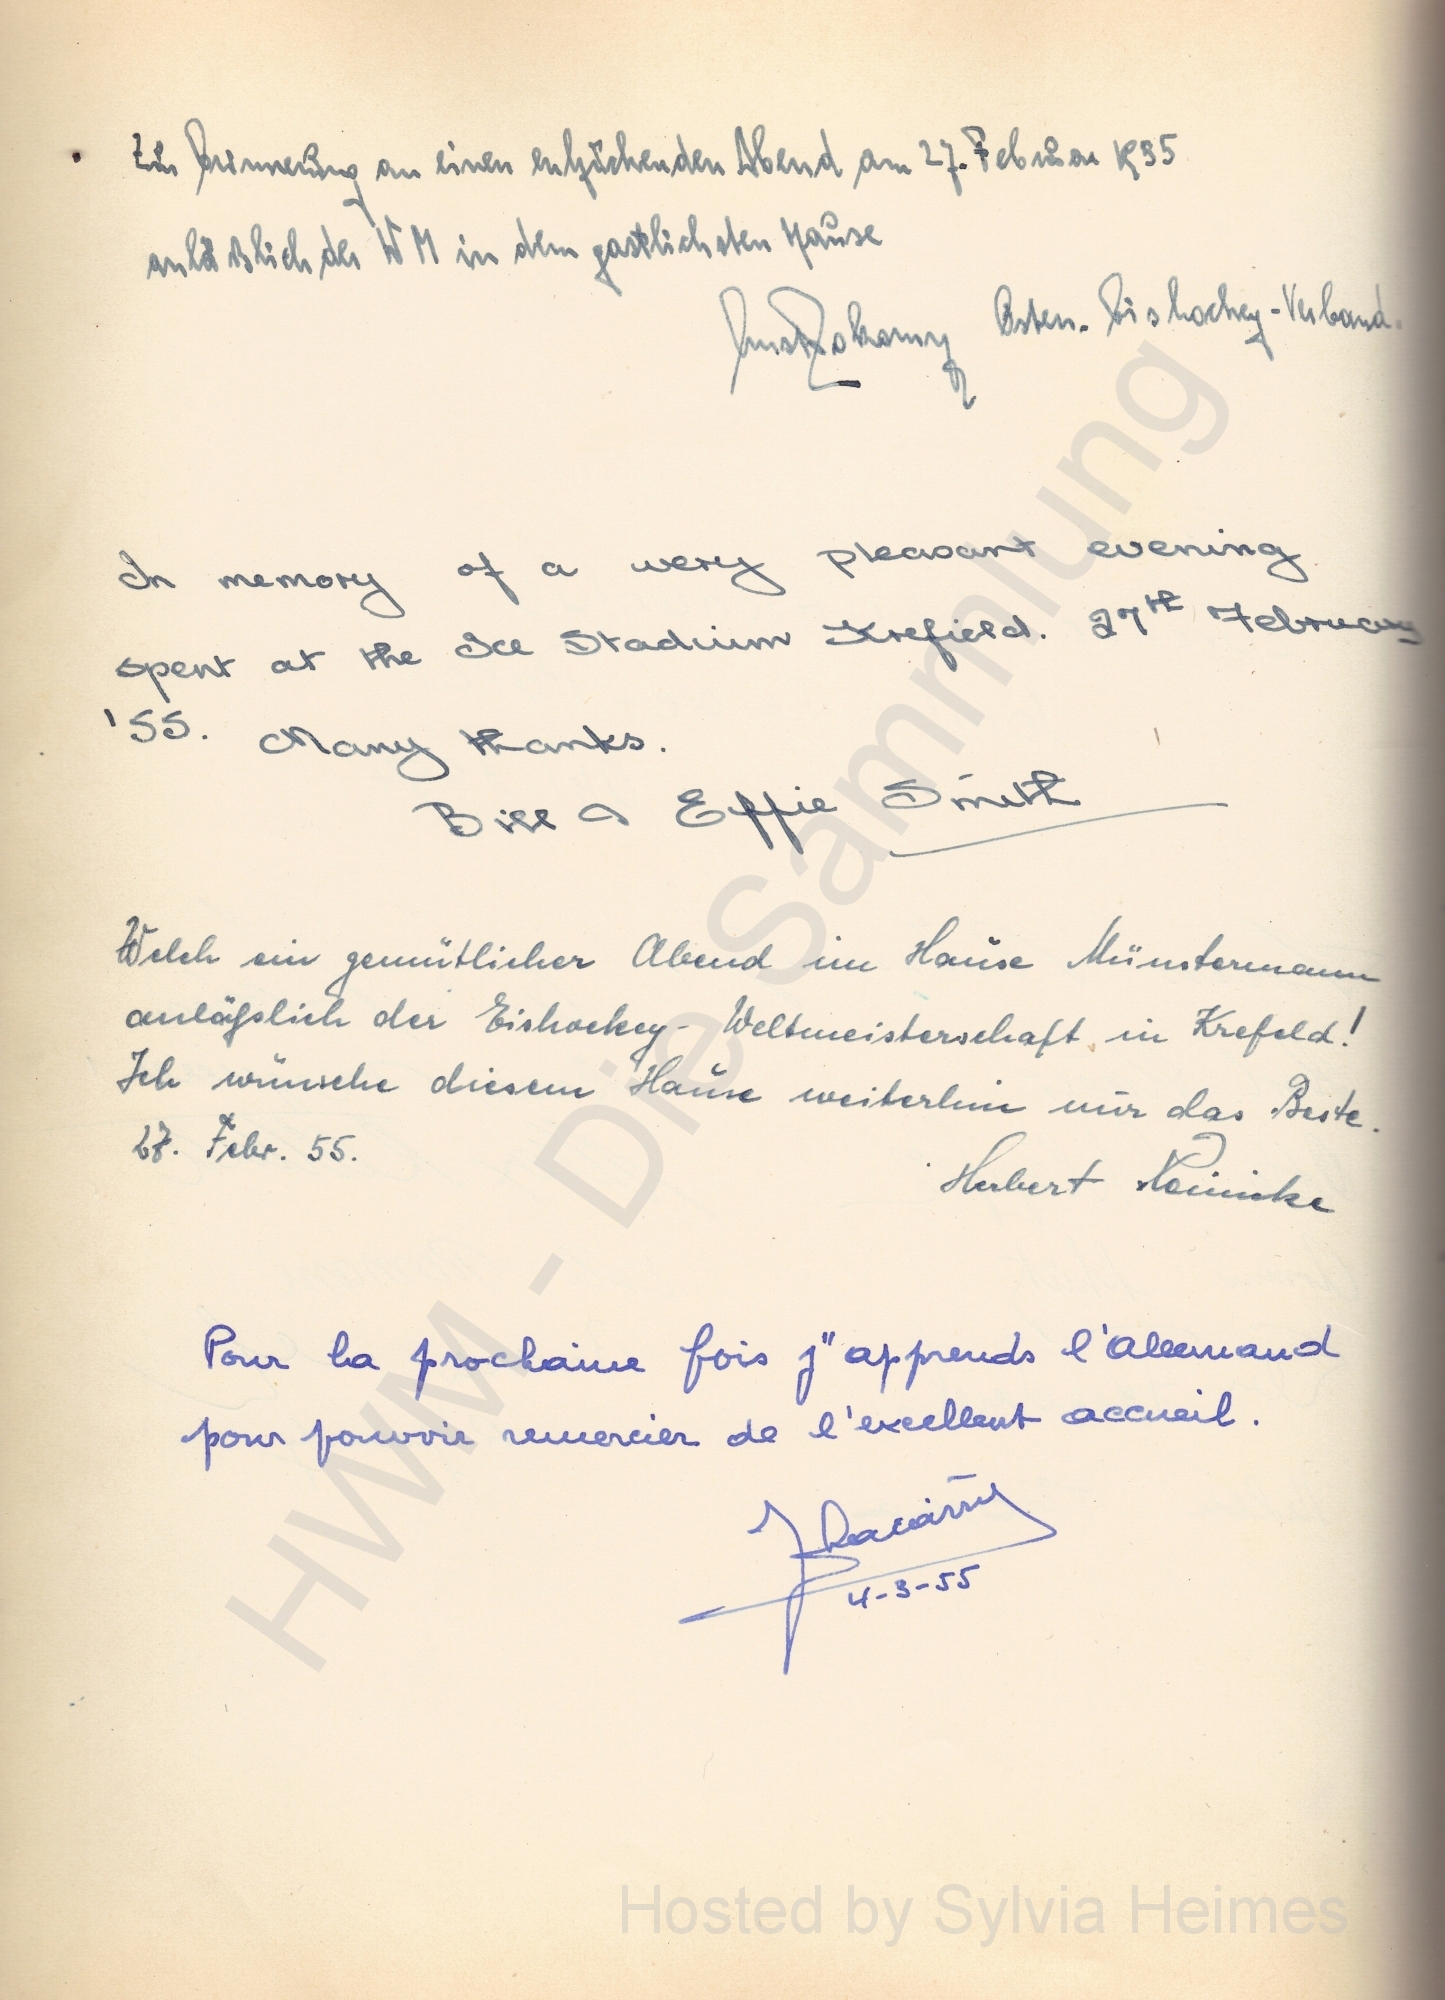 Zur Erinnerung an einen entzückenden Abend am 27. Februar 1955
anläßlich der WM in dem gastlichsten Hause
Ernst Österr. Eishockey-Verband.
In memory of a very pleasant evening
spent at the Ice Stadium Krefield. 27th February
'55. Many thanks.
Bill & Effie Smith
Welch ein gemütlicher Abend im Hause Münstermann
anläßlich der Eishockey-Weltmeisterschaft in Krefeld!
Ich wünsche diesem Hause weiterhin nur das Beste.
27. Febr. 55.
Herbert
Pour la prochaine fois j"apprends l'allemand
pour pouvoir remercier de l'excellent accueil.
4-3-55
HWM - Die Sammlung
Hosted by Sylvia Heimes